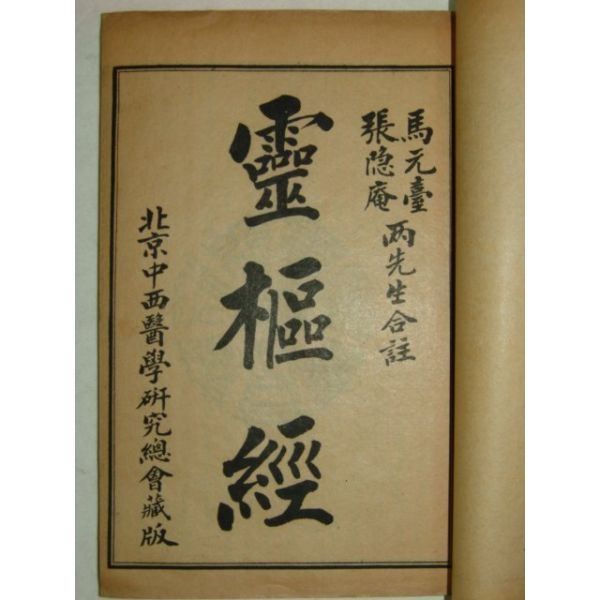 馬元臺
張隐庵
两先生合註
靈樞經
北京中西醫學硏究總會藏版